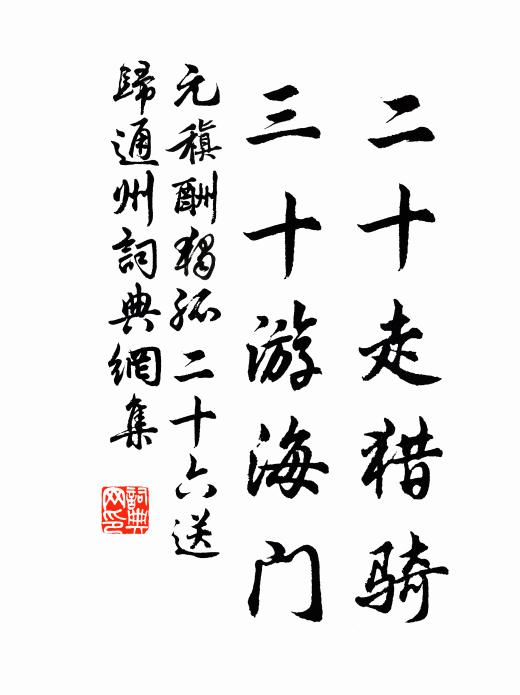 二十走猎骑
三十游海门
元稹酬独孤二十六送
歸通州詞典網集
詞典
网印